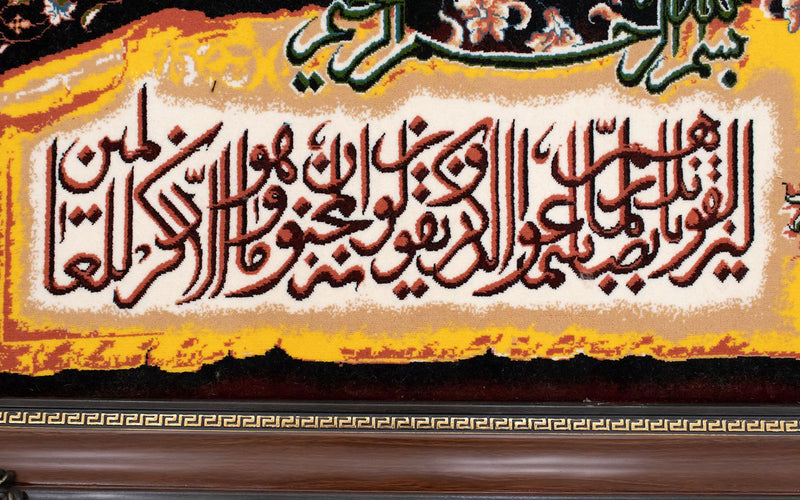 بسم الله الرحمن الرحيم
ليزلقونك بابصارهم لما سمعوا الذكر و يقولون انه لمجنون و ما هو الا ذكر للعالمين